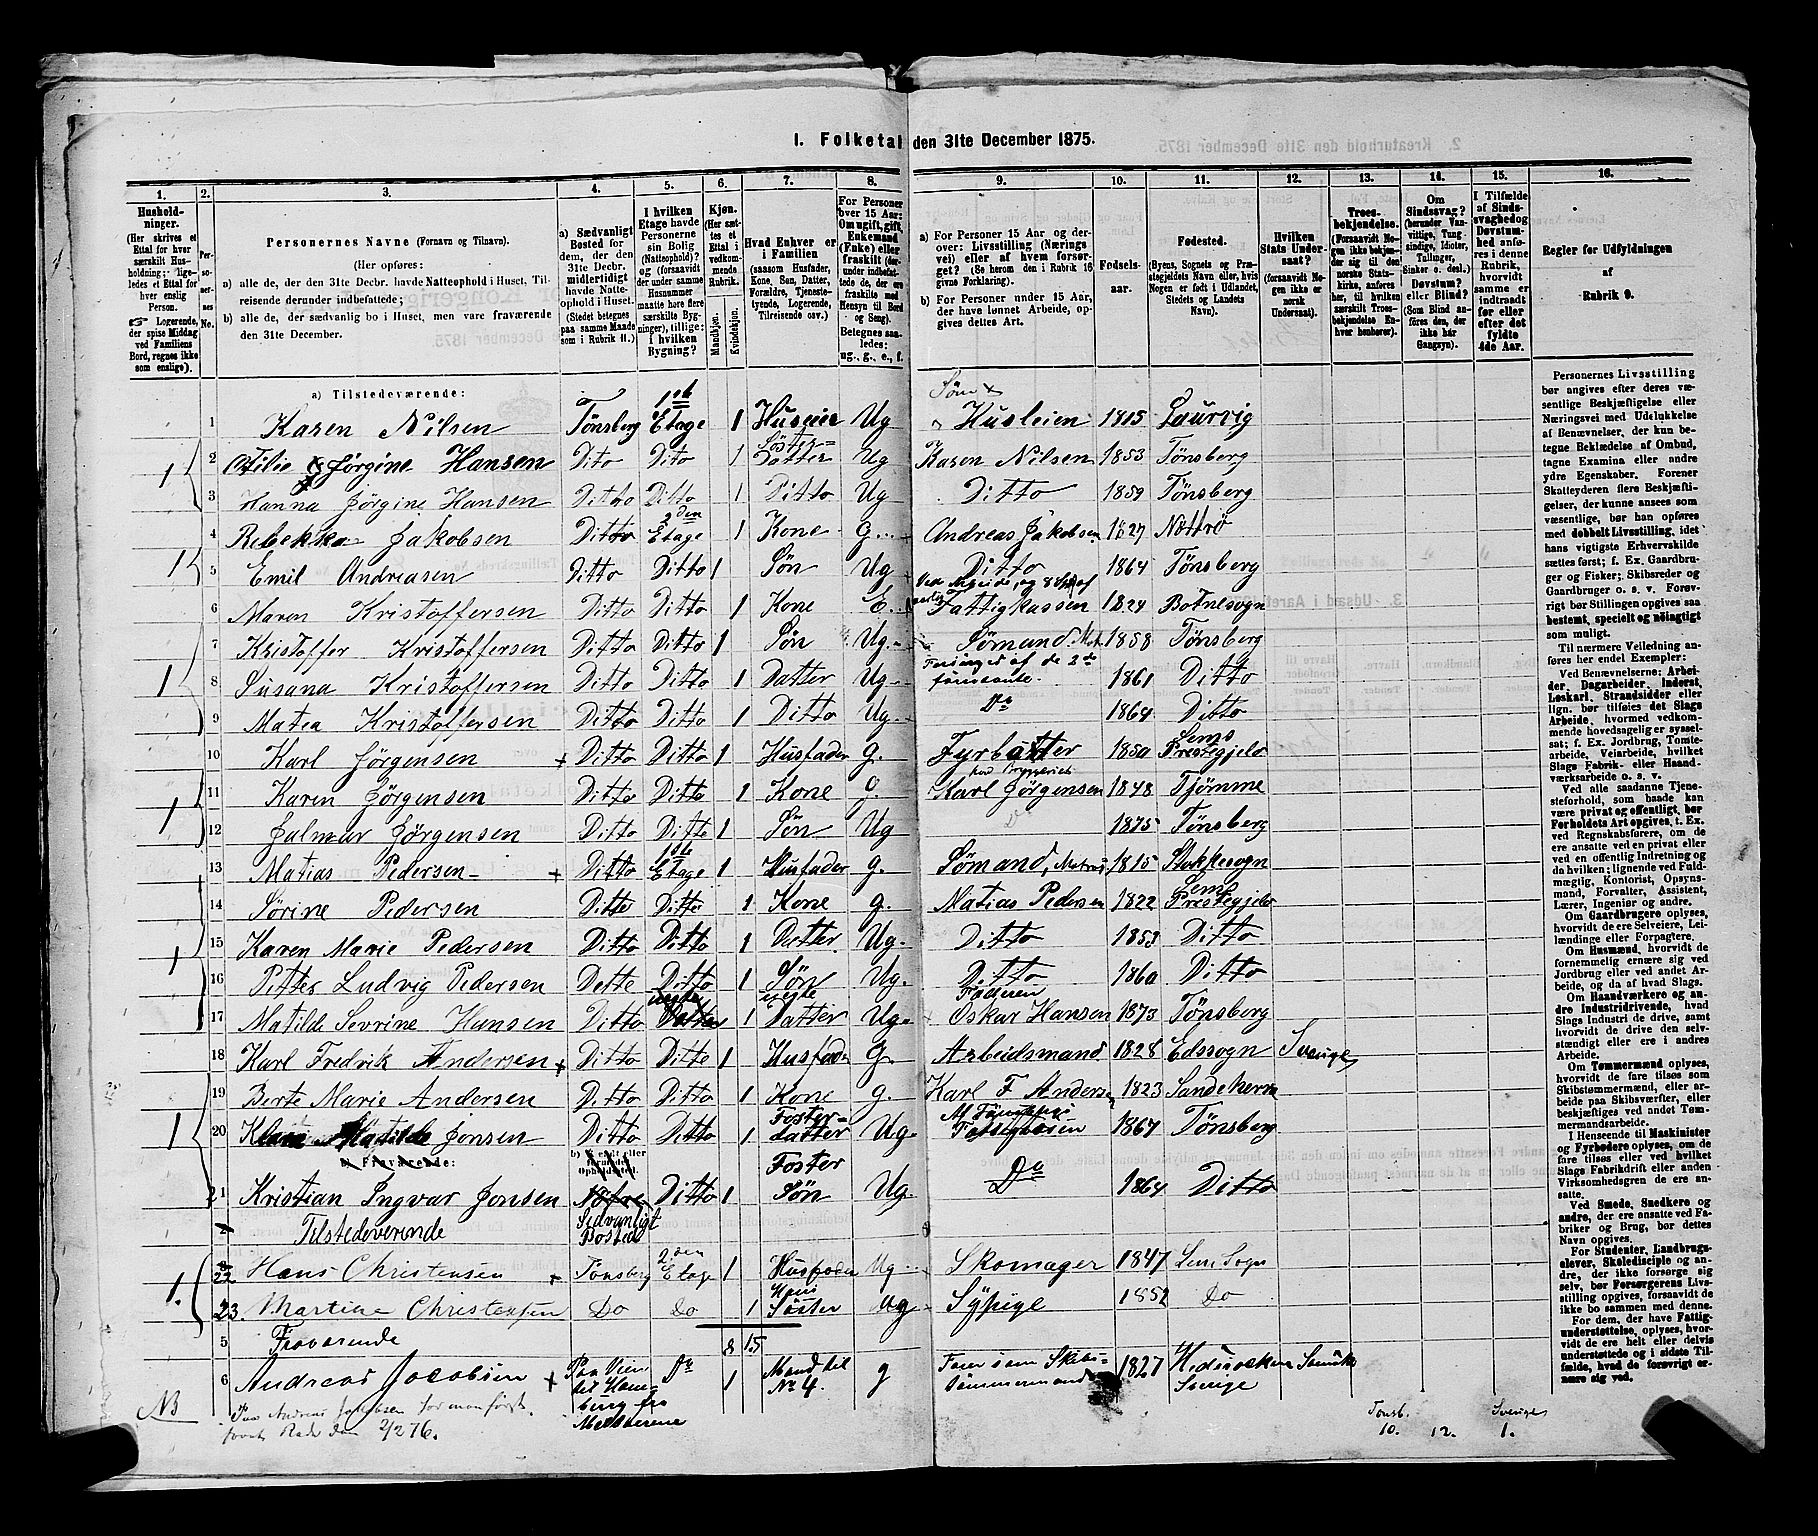 1. Folketal den 31te December 1875.
1. 2. 3. 4. 5. 6. 7. 8. 9. 10. 11. 12. 13. 14. 15. 16.
Hushold-
ninger.
(Her skrives et
Ettal for hver
særskilt Hus-
holdning; lige-
ledes et Ettal
for hver enslig
Person.
Logerende,
der spise Middag
ved Familiens
Bord, regnes ikke
som enslige).
Per-
soner-
nes
No.
Personernes Navne (Fornavn og Tilnavn).
(Her opføres:
a) alle de, der den 31te Decbr. havde Natteophold i Huset, Til-
reisende derunder indbefattede;
b) alle de, der sædvanlig bo i Huset, men vare fraværende
den 31te December.
a) Sædvanligt
Bosted for
dem, der den
31te Decbr.
midlertidigt
havde Natte-
ophold i Huset.
(Stedet betegnes
paa samme Maade
som i Rubrik 11.)
I hvilken
Etage havde
Personerne
sin Bolig
(Natteophold)?
og (forsaavidt
der under samme
Husnummer
maatte høre flere
særskilte Byg-
ninger), tillige:
i hvilken
Bygning?
Kjøn.
(Her sæt-
tes et
Ettal i
vedkom-
mende
Rubrik.
Mandkjøn.
Kvindekjøn.
Hvad Enhver er
i Familien
(saasom Husfader,
Kone, Søn, Datter,
Forældre, Tjeneste-
tyende, Logerende,
Tilreisende osv.).
For Personer
over 15 Aar:
Om ugift, gift,
Enkemand
(Enke) eller
fraskilt (der-
under indbefat-
tede de, der ere
fraskilte med
Hensyn til Bord
og Seng).
Betegnes saa-
ledes:
ug., g., e., f.
a) For Personer 15 Aar og der-
over: Livsstilling (Nærings
vei) eller af hvem forsør-
get? (Se herom den i Rubrik 16
givne Forklaring).
b) For Personer under 15 Aar,
der have lønnet Arbeide, op-
gives dettes Art.
Fødsels-
aar.
Fødested.
(Byens, Sognets og Præ-
stegjeldets Navn eller, hvis
Nogen er født i Udlandet,
Stedets og Landets
Navn).
Hvilken
Stats Under-
saat?
(forsaavidt No-
gen ikke er
norsk
Undersaat).
Troes-
bekjendelse.
(Forsaavidt No-
gen ikke bekjen-
der sig til den
norske Stats-
kirke, anføres
her, til hvilken
særskilt Troes-
bekjendelse En-
hver henhører).
Om
Sindssvag?
(herunder Van-
vittige, Tung-
sindige, Idioter,
Tullinger,
Sinker o. desl.)
Døvstum?
eller Blind?
(Som Blind an-
føres den, der
ikke har
Gangsyn).
I Tilfælde
af Sinds-
svaghed og
Døvstum-
hed anfø-
res i denne
Rubrik,
hvorvidt
samme er
indtraadt
før eller
efter det
fyldte
4de Aar.
Regler for Udfyldningen
af
Rubrik 9.
a) Tilstedeværende:
1 Karen Nilsen Tønsberg 1ste Etage 1 Huseier Ug Husleien 1815 Laurvig
1 2 Otilie Jørgine Hansen Dito Dito 1 Søster=Datter Ug Karen Nilsen 1853 Tønsberg
3 Hanna Jørgine Hansen Ditto Ditto 1 Ditto Ug Ditto 1859 Tønsberg
4 Rebekka Jakobsen Ditto 2den Etage 1 Kone g. Andreas Jakobsen 1827 Nøtterø
1 5 Emil Andreasen Ditto Ditto 1 Søn Ug Ditto 1864 Tønsberg
6 Maren Kristoffersen Ditto Ditto 1 Kone E. Ved Arbeide, og af Fattigkassen 1824 Botnesogn
7 Kristoffer Kristoffersen Ditto Ditto 1 Søn Ug. Sømand. 1858 Tønsberg
1 8 Susana Kristoffersen Ditto Ditto 1 Datter Ug. Forsørged af de 2de førnævnte. 1861 Ditto
9 Matea Kristoffersen Ditto Ditto 1 Ditto Ug. Do 1864 Ditto
10 Karl Jørgensen + Ditto Ditto 1 Husfader g. Fyrbøtter 1850 Sems Prestegjeld
1 11 Karen Jørgensen Ditto Ditto 1 Kone g. Karl Jørgensen 1848 Tjømme
12 Jalmar Jørgensen Ditto Ditto 1 Søn Ug 1875 Tønsberg
13 Matias Pedersen + Ditto 1ste Etage 1 Husfader g. Sømand, Matros 1815 Stokkesogn
14 Sørine Pedersen Ditto Ditto 1 Kone g. Matias Pedersen 1822 Sems Prestegjeld
1 15 Karen Marie Pedersen Ditto Ditto 1 Datter Ug. Ditto 1853 Ditto
16 Pitter Ludvig Pedersen Ditto Ditto 1 Søn Ug. Ditto 1860 Ditto
17 Matilde Sevrine Hansen Ditto Ditto 1 uegte Datter Ug. Faderen Oskar Hansen 1873 Tønsberg
18 Karl Fredrik Andersen + Ditto Ditto 1 Husfader g. Arbeidsmand 1828 Edssogn Sverige
19 Berte Marie Andersen Ditto Ditto 1 Kone g. Karl F Andersen 1823 Sandeherre
1 20 Klara Matilde Jonsen Ditto Ditto 1 Foster=datter Ug. Af Tønsbergs Fattigkassen 1867 Tønsberg
b) Fraværende: b) Kjendt eller formodet Opholdssted.
21 Kristian Ingvar Jonsen Ditto 1 Foster Søn Ug. Do 1864 Ditto
Tilstedeverende Sedvanligt Bosted
1. 22 Hans Christensen + Tønsberg 2den Etage 1 Husfader Ug Skomager 1847 Sem Sogn
23. Martine Christensen Do Do 1 Hans Søster Ug Sypige 1852 Do
5 Fraværende 8 15
6 Andreas Jacobsen + Paa Veien til Ham-burg fra 1 Do Mand til No 4. g Farer som Skibs-tømmermand 1827 Sverige
NB Fra Andreas Jacobsen har man først
faaet Rede den 2/2 76.
Tønsb. 10. 12. Sverige 1.
Personernes Livsstilling
bør angives efter deres væ-
sentlige Beskjæftigelse eller
Næringsvei med Udelukkelse
af Benævnelser, der kun be-
tegne Beklædelse af Ombud,
tagne Examina eller andre
ydre Egenskaber. Forener
Skatteyderen flere Beskjæfti-
gelser, der kunne ansees som
væsentlige, bør han opføres
med dobbelt Livsstilling, idet
hans vigtigste Erhvervskilde
sættes først; f. Ex. Gaardbru-
ger og Fisker; Skibsreder og
Gaardbruger o. s. v. Forøv-
rigt bør Stillingen opgives saa
bestemt, specielt og nöiagtigt
som muligt.
Til nærmere Veiledning an-
føres her endel Exempler:
Ved Benævnelserne: Arbei-
der, Dagarbeider, Inderst,
Løskarl, Strandsidder eller
lign. bør tilføies det Slags
Arbeide, hvormed vedkom-
mende hovedsagelig er syssel-
sat; f. Ex. Jordbrug, Tomte-
arbeide, Veiarbeide, hvilket
Slags Fabrik- eller Haand-
værksarbeide o. s. v.
Ved alle saadanne Tjene-
steforhold, som baade kan
være privat og offentligt, bør
Forholdets Art opgives, t. Ex.
ved Regnskabsførere, om de
ere ansatte ved en privat eller
ved en offentlig Indretning og
da hvilken; lignende ved Fuld-
mægtig, Kontorist, Opsyns-
mand, Forvalter, Assistent,
Lærer, Ingeniør og andre.
Om Gaardbrugere oplyses,
hvorvidt de ere Selveiere, Lei-
lændinge eller Forpagtere.
Om Husmænd, hvorvidt de
fornemmelig ernære sig ved
Jordbrug eller ved andet Ar-
beide, og da af hvad Slags.
Om Haandværkere og an-
dre Industridrivende, hvad
Slags Industri de drive, samt
hvorvidt de drive den selv-
stændigt eller ere i andres
Arbeide.
Om Tømmermænd oplyses,
hvorvidt de fare tilsøs som
Skibstømmermænd, eller ar-
beide paa Skibsværfter, eller
beskjæftiges ved andet Tøm-
mermandsarbeide.
I Henseende til Maskinister
og Fyrbødere oplyses, om de
fare tilsøs eller ved hvilket
Slags Fabrikdrift eller anden
Virksomhedsgren de ere an-
satte.
Ved Smede, Snedkere og
andre, der ere ansatte ved Fa-
briker og Brug, bør dettes
Navn opgives.
For Studenter, Landbrugs-
elever, Skoledisciple og an-
dre, der ikke forsørge sig
selv, bør Forsørgerens Livs-
stilling opgives, forsaavidt de
ikke bo sammen med denne.
For dem, der have Fattig-
understøttelse, oplyses, hvor-
vidt de ere helt eller delvis
understøttede og i sidste Til-
fælde, hvad de forøvrigt er-
nære sig ved.